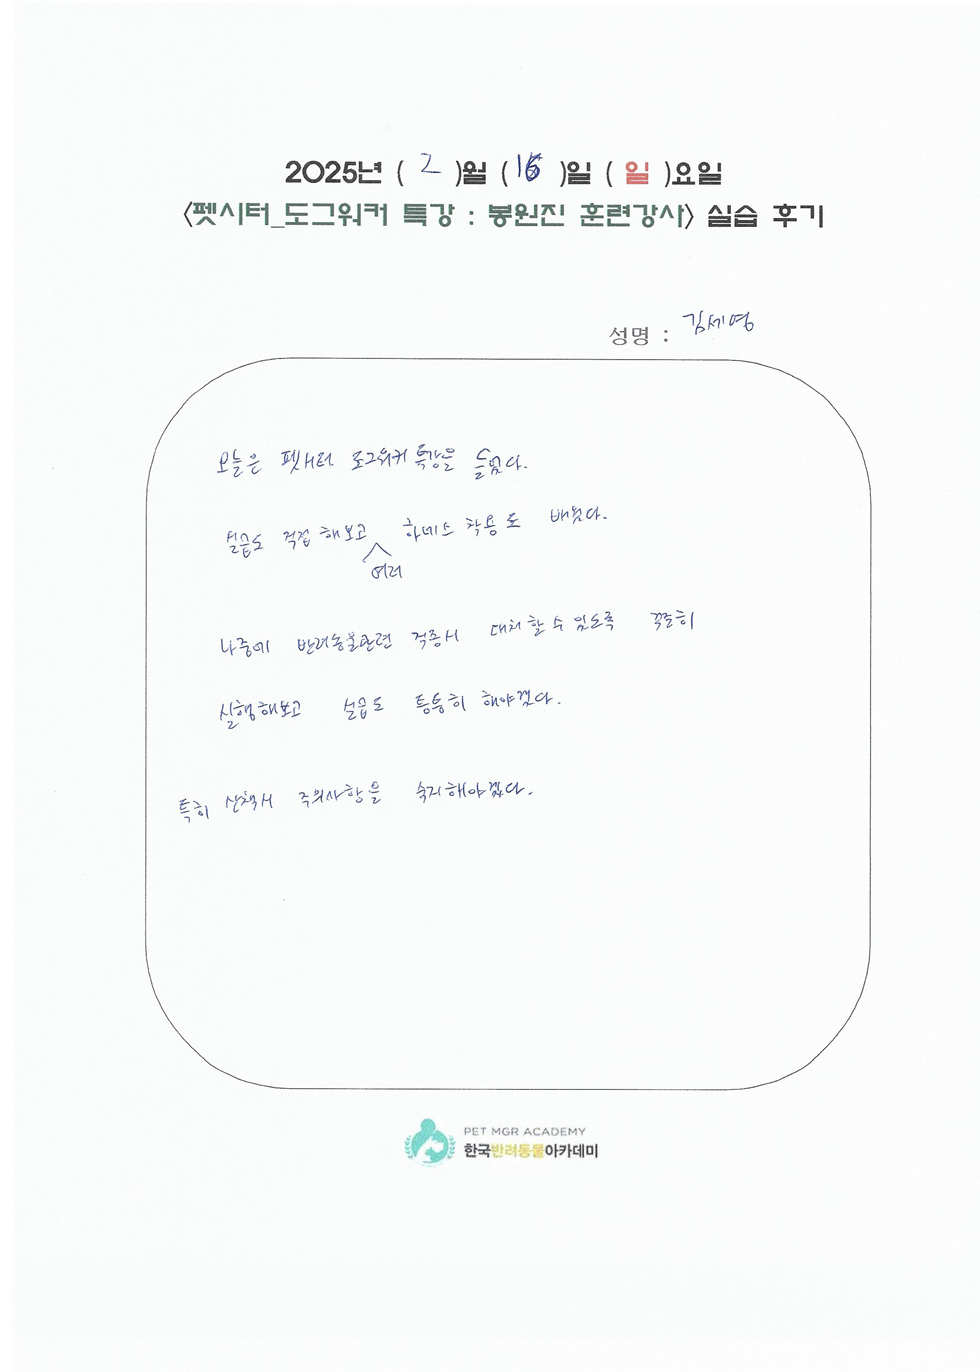 2025년 ( 2 )월 ( 16 )일 ( 일 )요일
<펫시터_도그워커 특강 : 봉원진 훈련강사> 실습 후기
성명 : 김세영
오늘은 펫시터 도그워커 특강을 들었다.
실습도 직접 해보고 여러 하네스 착용도 배웠다.
나중에 반려동물관련 직종서 대처할 수 있도록 꾸준히
실행해보고 실습도 틈틈히 해야겠다.
특히 산책시 주의사항을 숙지해야겠다.
PET MGR ACADEMY
한국반려동물아카데미